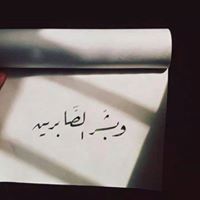 وبشَّر الصَّابرين